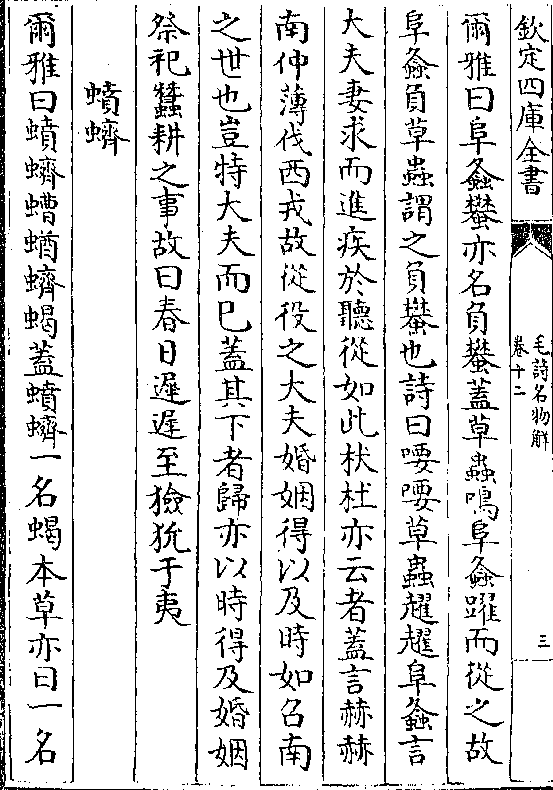 欽定四庫全書
毛詩名物解
卷十二
三
爾雅曰阜螽蠜亦名負蠜蓋草蟲鳴阜螽躍而從之故
阜螽負草蟲謂之負蠜也詩曰喓喓草蟲趯趯阜螽言
大夫妻求而進疾於聽從如此杕杜亦云者蓋言赫赫
南仲薄伐西戎故從役之大夫婚姻得以及時如召南
之世也豈特大夫而已蓋其下者歸亦以時得及婚姻
祭祀蠶耕之事故曰春日遲遲至獫狁于夷
蟦蠐
爾雅曰蟦蠐螬蝤蠐蝎蓋蟦蠐一名蝎本草亦曰一名